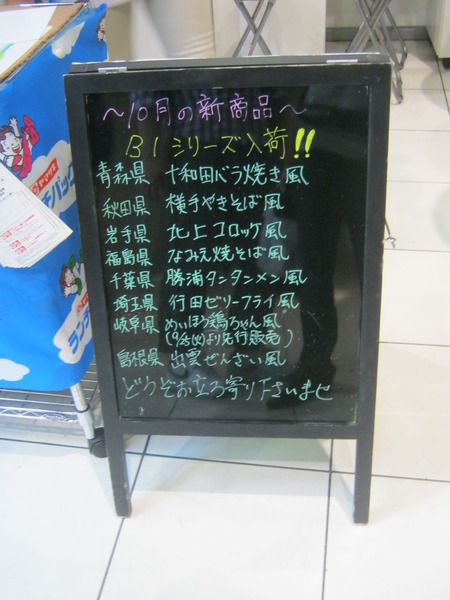 ～10月の新商品～
B1シリーズ入荷!!
青森県 十和田バラ焼き風
秋田県 横手やきそば風
岩手県 北上コロッケ風
福島県 なみえ焼そば風
千葉県 勝浦タンタンメン風
埼玉県 行田ゼリーフライ風
岐阜県 めいほう鶏ちゃん風
より先行販売)
島根県 出雲ぜんざい風
どうぞお立ち寄り下さいませ
ランチ
パック